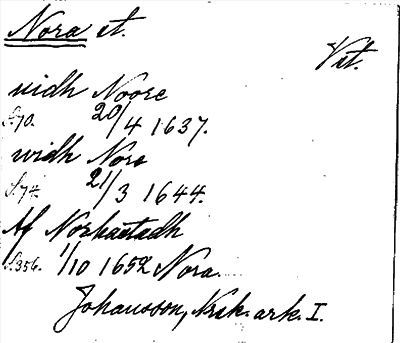 Nora st.
Vst.
widh Noore
S.70. 20/4 1637.
widh Nore
S.74. 21/3 1644.
Af Norhaetadh
S.356. 1/10 1652 Nora.
Johansson, Nrsk. ark. I.